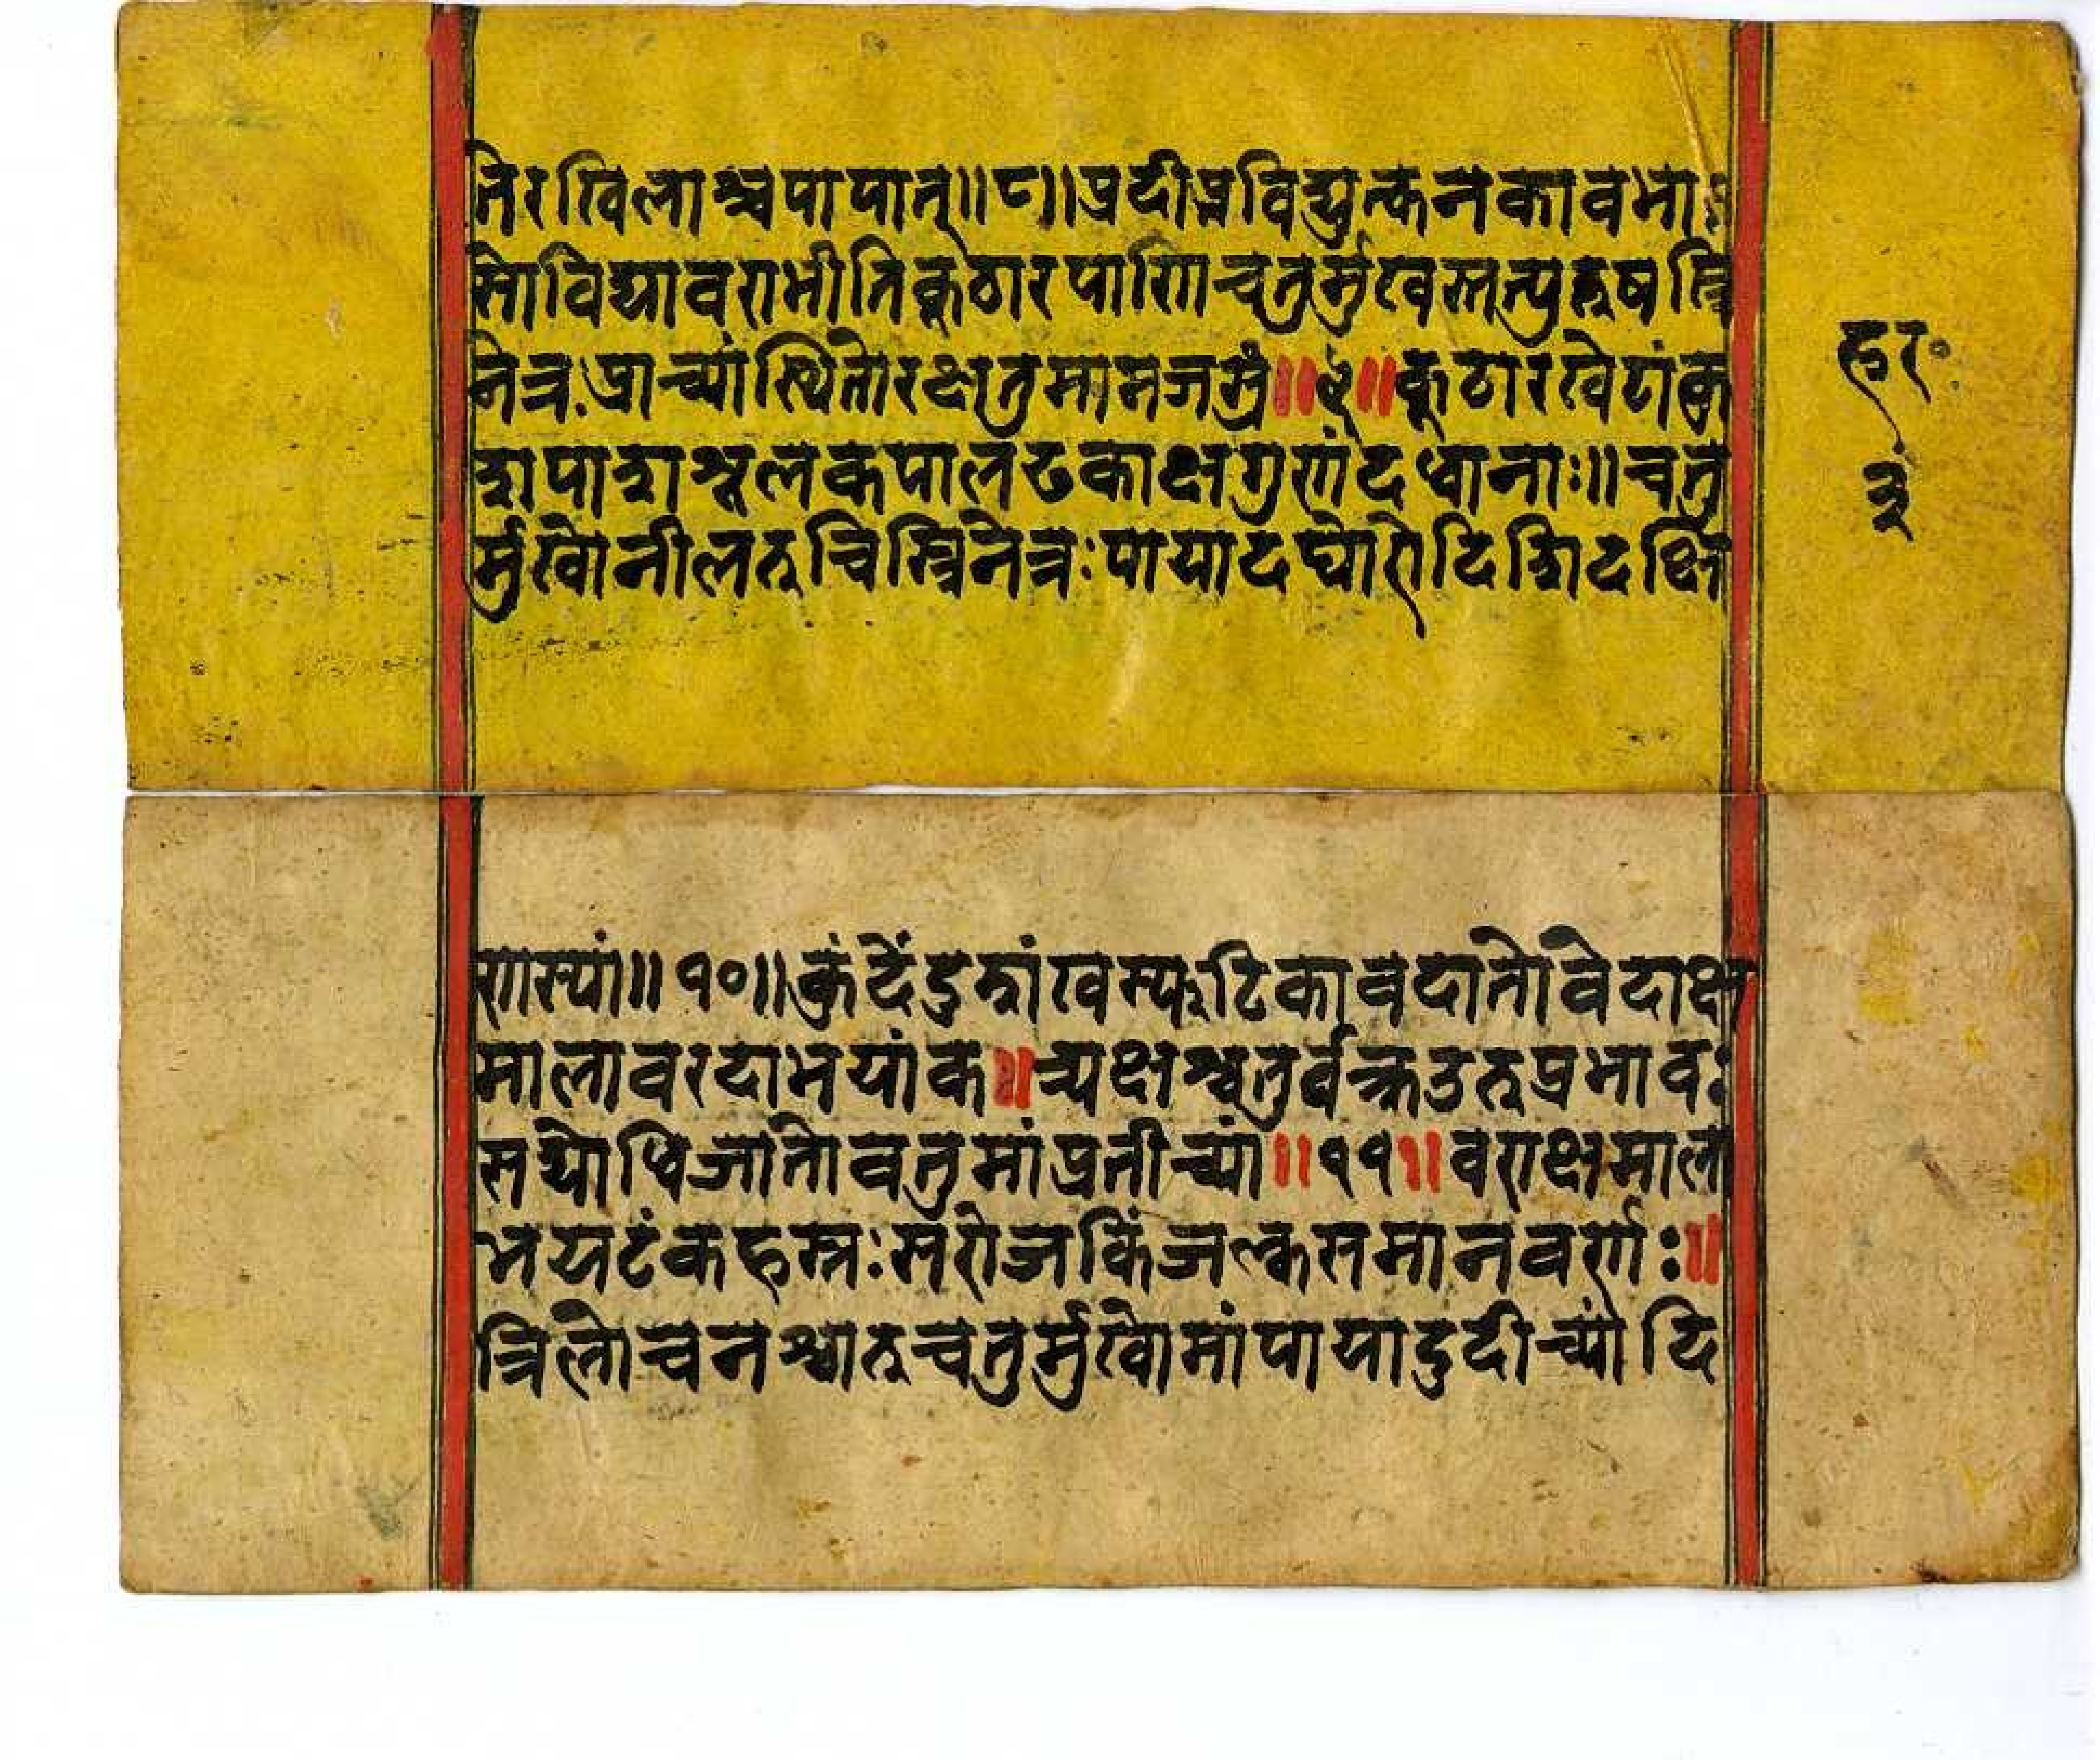 तिरखिलाश्चपापान्॥८॥प्रदीप्तविद्युत्कनकावभा
सोविद्यावराभीतिकुठारपाणिचतुर्मुखस्तत्पुरुषस्त्रि
नेत्रःप्राच्यांस्थितोरक्षतुमामजस्रं॥९॥कुठारखेटांकु
शपाशशूलकपालढकाक्षगुणंदधानाः॥चतु
र्मुखोनीलरुचिस्त्रिनेत्रःपायादघोरोदिशिदक्षि
हरः
३
णास्यां॥१०॥कुंदेंदुशंखस्फटिकावदातोवेदाक्ष
मालावरदाभयांक॥त्र्यक्षश्चतुर्वक्त्रउरुप्रभावः
सद्योधिजातोवतुमांप्रतीच्यां॥११॥वराक्षमाला
भयटंकहस्तःसरोजकिंजल्कसमानवर्णः॥
त्रिलोचनश्चारुचतुर्मुखोमांपायादुदीच्यां दि